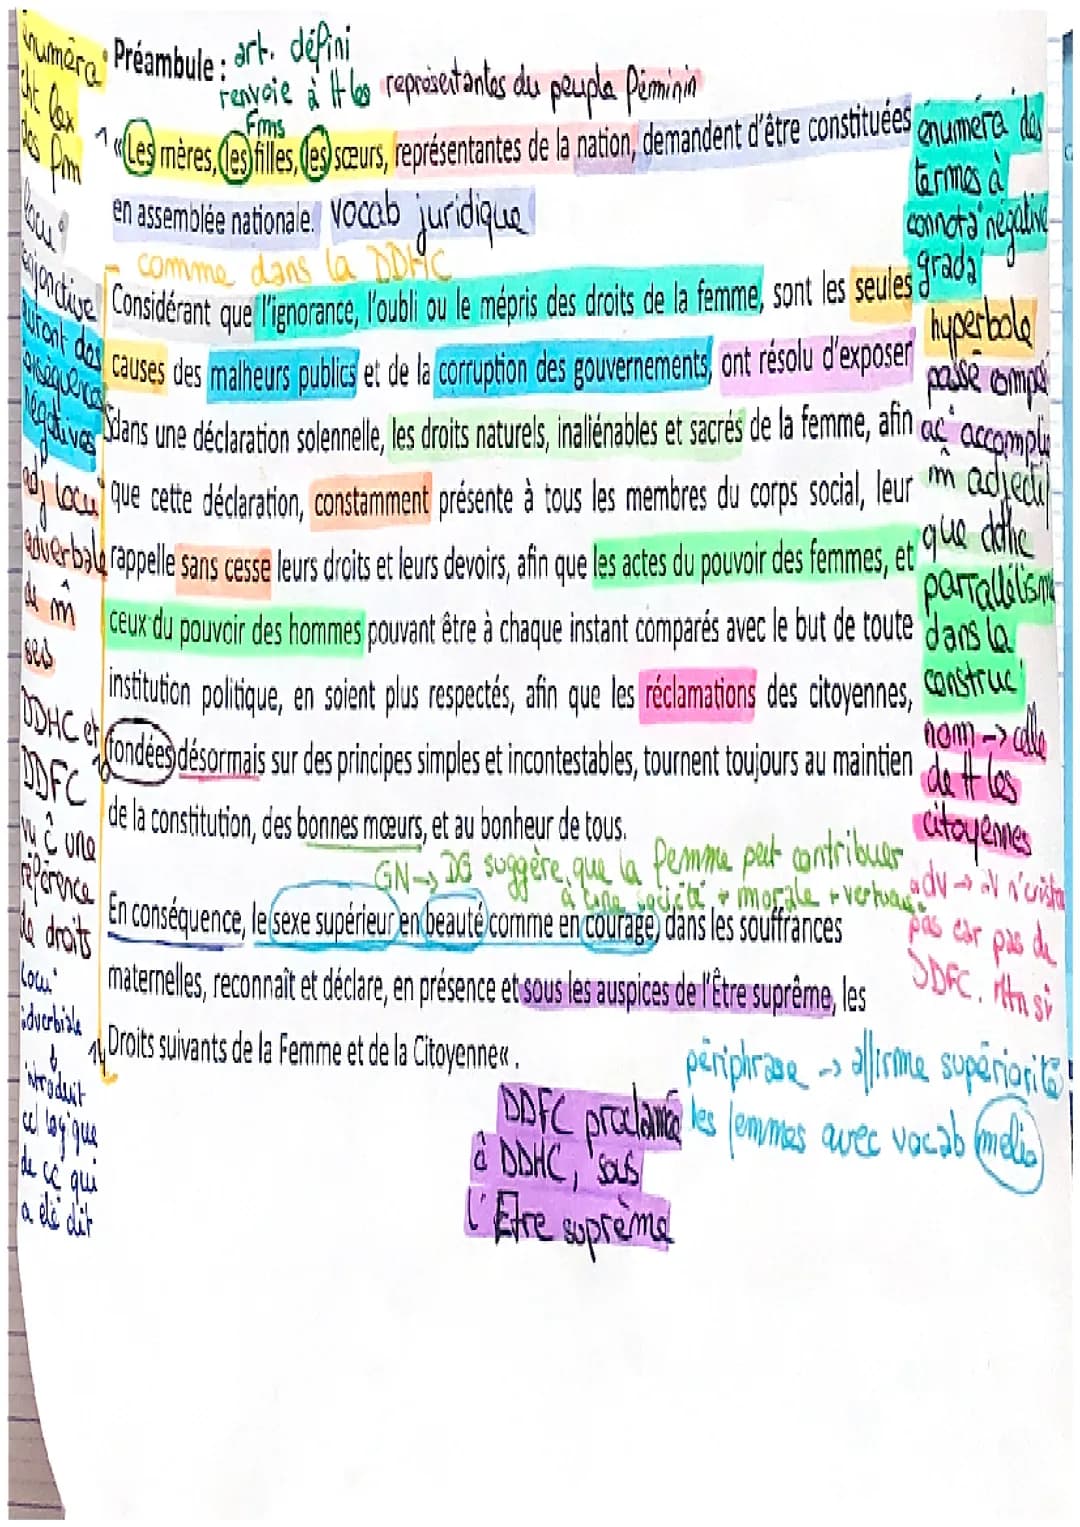 Préambule : art. défini
renvoie à tt les représentantes du peuple féminin
fms
1 «Les mères, les filles, les sœurs, représentantes de la nation, demandent d'être constituées
en assemblée nationale. vocab juridique
comme dans la DDHC
Considérant que l'ignorance, l'oubli ou le mépris des droits de la femme, sont les seules
causes des malheurs publics et de la corruption des gouvernements, ont résolu d'exposer
5 dans une déclaration solennelle, les droits naturels, inaliénables et sacrés de la femme, afin
que cette déclaration, constamment présente à tous les membres du corps social, leur
rappelle sans cesse leurs droits et leurs devoirs, afin que les actes du pouvoir des femmes, et
ceux du pouvoir des hommes pouvant être à chaque instant comparés avec le but de toute
institution politique, en soient plus respectés, afin que les réclamations des citoyennes,
fondées désormais sur des principes simples et incontestables, tournent toujours au maintien
de la constitution, des bonnes mœurs, et au bonheur de tous.
GN -> DG suggère que la femme peut contribuer
à une société + morale + vertueuse
En conséquence, le sexe supérieur en beauté comme en courage, dans les souffrances
maternelles, reconnaît et déclare, en présence et sous les auspices de l'Être suprême, les
14 Droits suivants de la Femme et de la Citoyenne« .
énuméra°
cht lex
des fm
locu°
conjonctive
auront des
conséquences
négatives
adj locu°
adverbale
de m̂
sens
DDHC et
DDFC
vu ĉ une
référence
de droits
locu°
adverbiale
introduit
de cc qui
a été dit
énuméra° des
termes à
connota° négative
grada°
hyperbole
passé compo
ac° accomplie
m̂ adjectif
que ddhc
parallélisme
dans la
construc°
nom -> celle
de tt les
citoyennes
adv -> av n'existe
pas car pas de
DDFC.
périphrase -> affirme supériorité
les femmes avec vocab mélio
DDFC proclamé
ĉ DDHC, sous
l'Être suprême